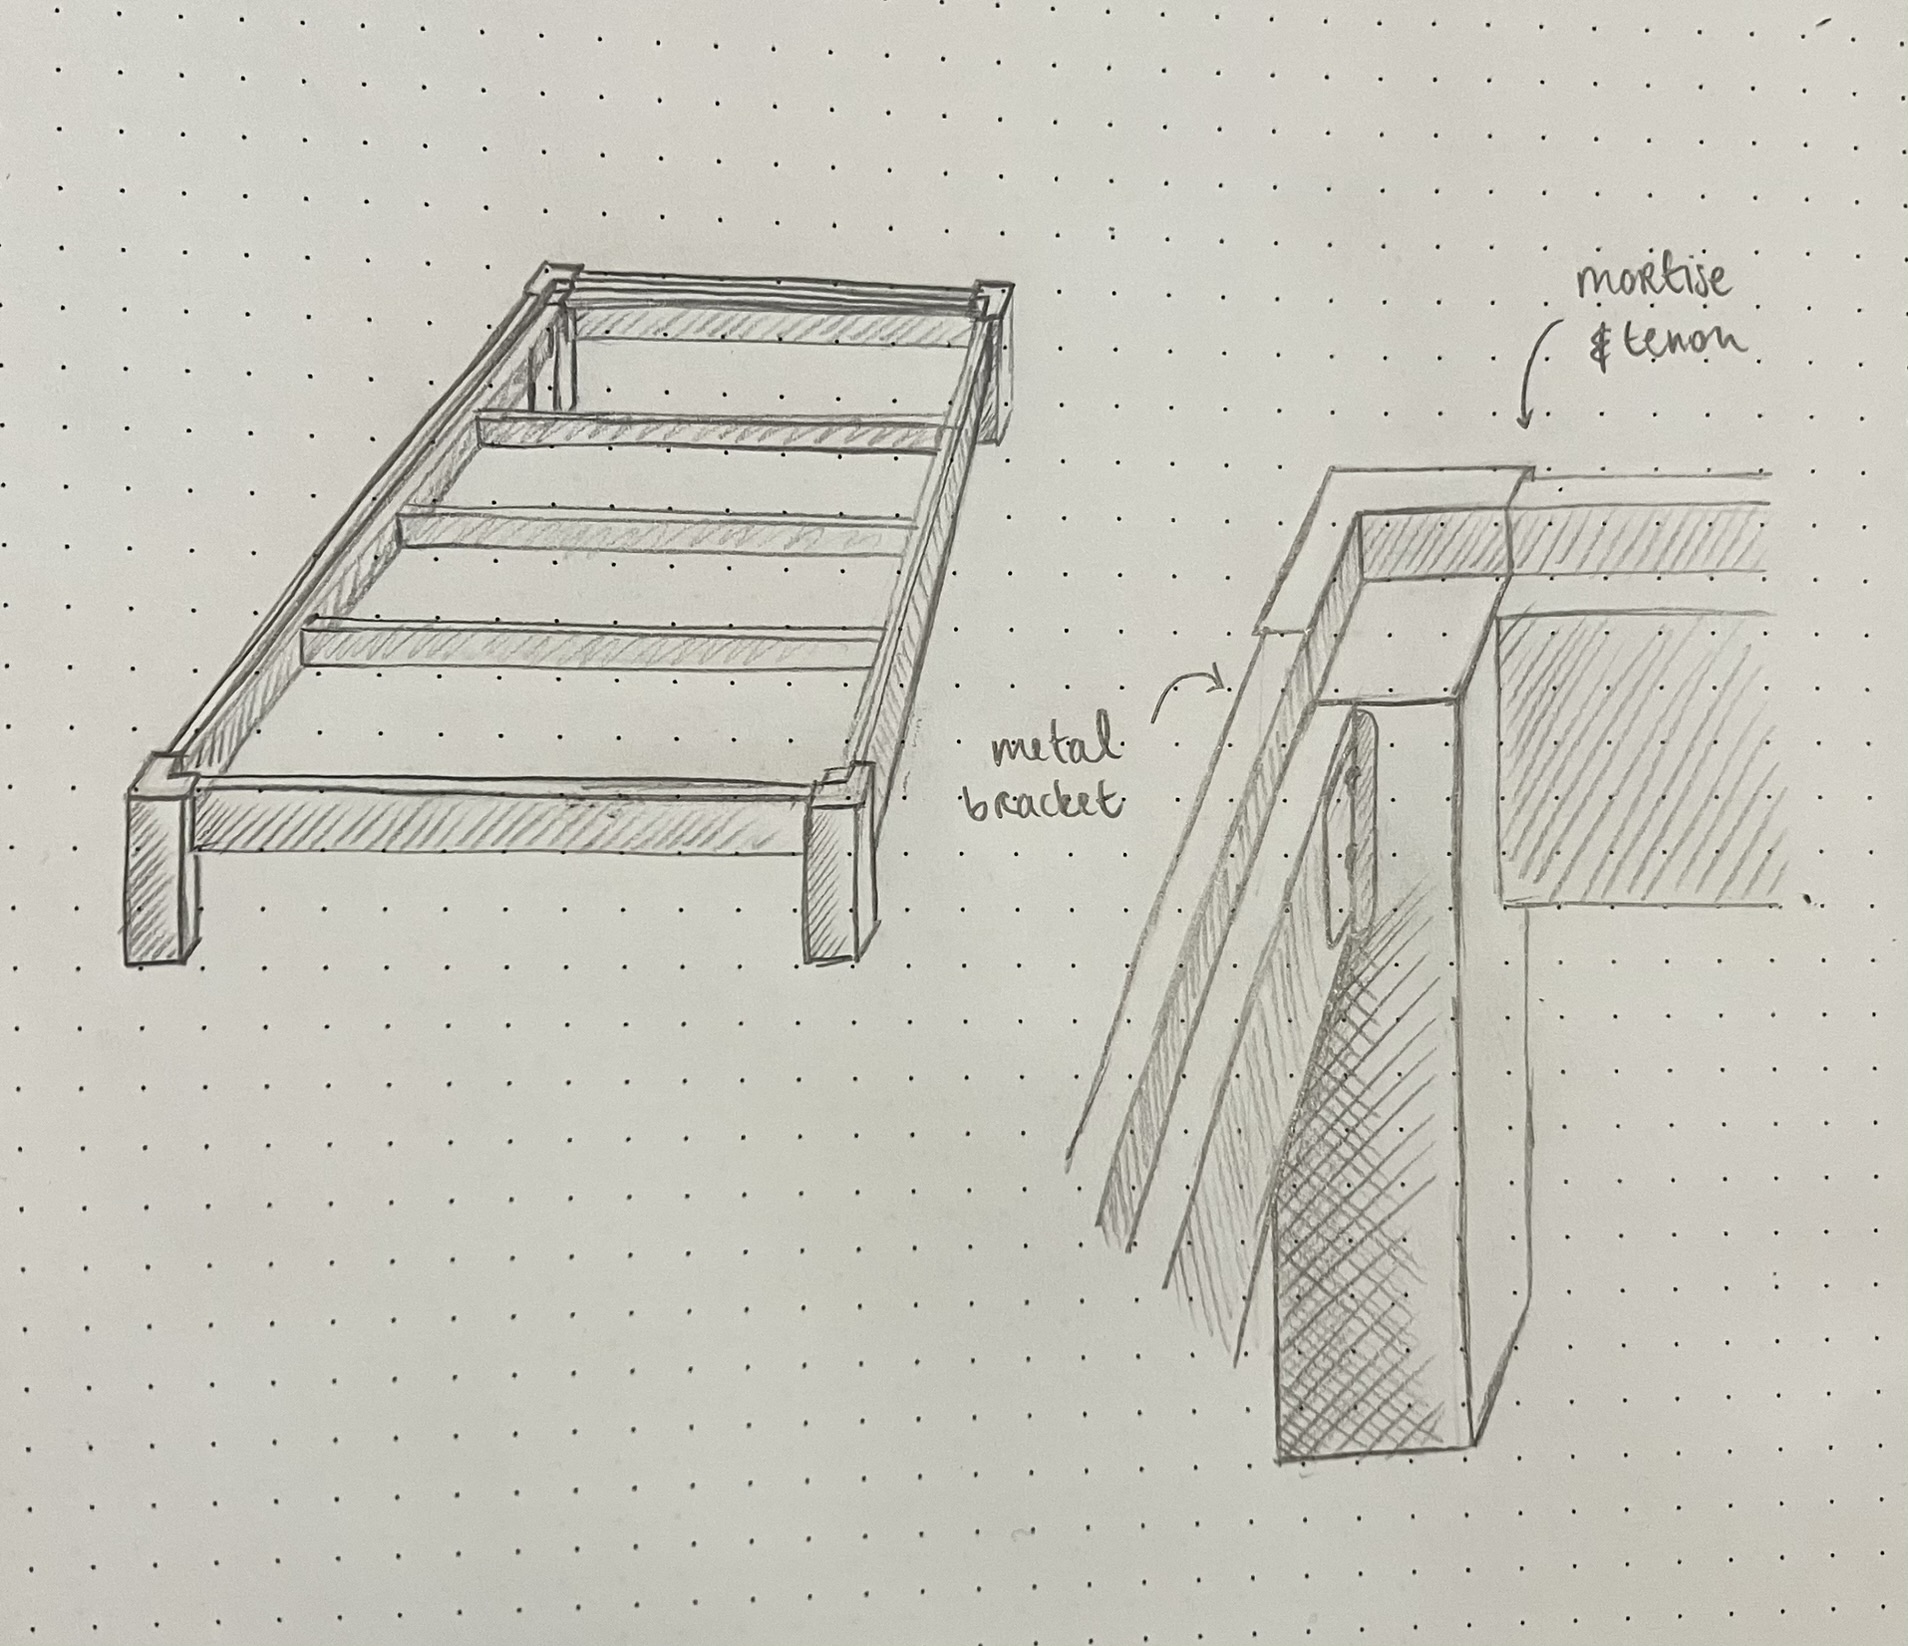 mortise
& tenon
metal
bracket